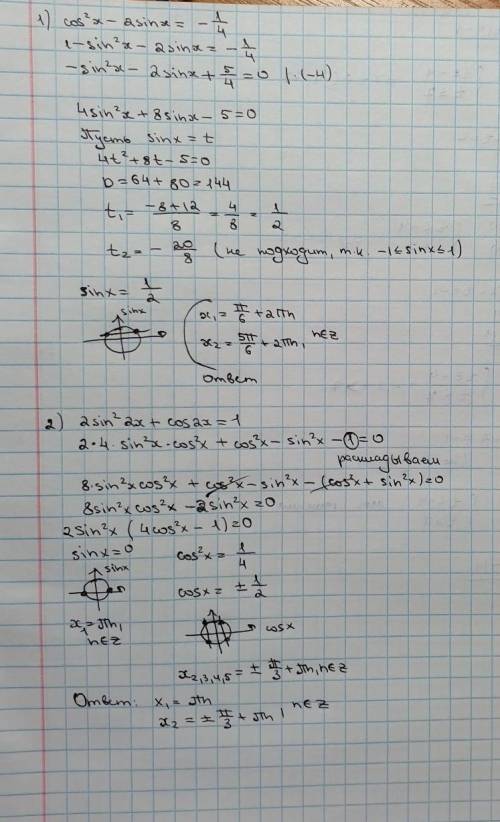 1) cos²x - 2sinx = -1/4
1 - sin²x - 2sinx = -1/4
-sin²x - 2sinx + 5/4 = 0 | ·(-4)
4sin²x + 8sinx - 5 = 0
Пусть sinx = t
4t² + 8t - 5 = 0
D = 64 + 80 = 144
t₁ = (-8+12)/8 = 4/8 = 1/2
t₂ = -20/8 (не подходит, т.к. -1 ≤ sinx ≤ 1)
sinx = 1/2
sinx
x₁ = π/6 + 2πn
x₂ = 5π/6 + 2πn, n∈Z
ответ
2) 2sin²2x + cos2x = 1
2·4·sin²x·cos²x + cos²x - sin²x - 1 = 0
раскладываем
8·sin²xcos²x + cos²x - sin²x - (cos²x + sin²x) = 0
8sin²xcos²x - 2sin²x = 0
2sin²x (4cos²x - 1) = 0
sinx = 0
sinx
x₁ = πn,
n∈Z
cos²x = 1/4
cosx = ± 1/2
cosx
x₂,₃,₄,₅ = ± π/3 + πn, n∈Z
Ответ: x₁ = πn
x₂ = ± π/3 + πn, n∈Z